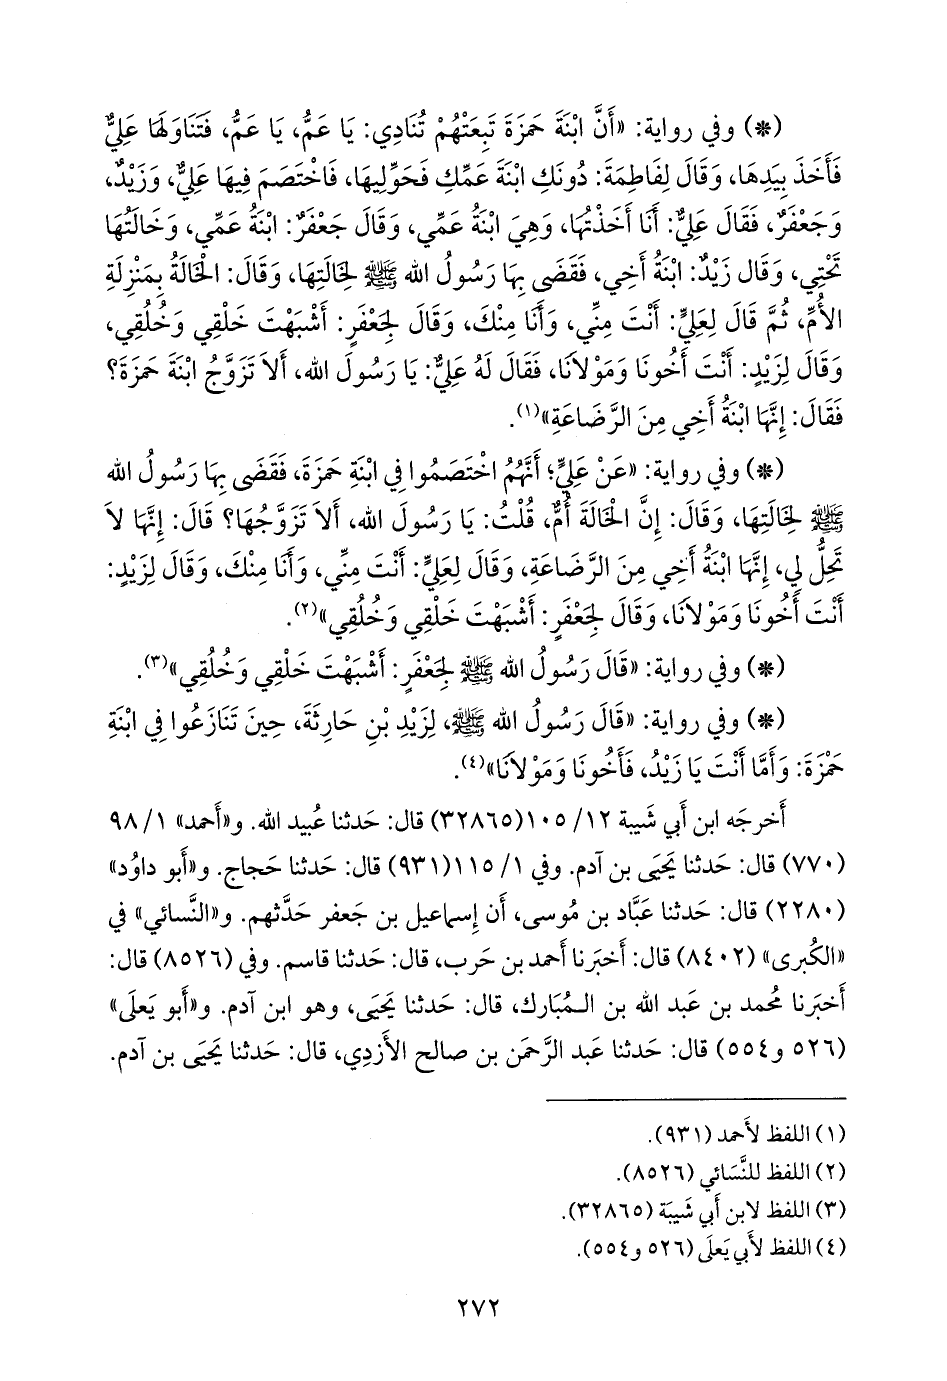 (*) وفي رواية: «أَنَّ ابْنَةَ حَمزَةَ تَبِعَتْهُمْ تُنَادِي: يَا عَمُّ، يَا عَمُّ، فَتَنَاوَلَهَا عَلِيٌّ
فَأَخَذَ بِيَدِهَا، وَقَالَ لِفَاطِمَةَ: دُونَكِ ابْنَةَ عَمِّكِ فَحَوِّلِيهَا، فَاخْتَصَمَ فِيهَا عَلِيٌّ، وَزَيْدٌ،
وَجَعْفَرٌ، فَقَالَ عَلِيٌّ: أَنَا أَخَذْتُهَا، وَهِيَ ابْنَةُ عَمِّي، وَقَالَ جَعْفَرٌ: ابْنَةُ عَمِّي، وَخَالَتُهَا
تَحْتِي، وَقَالَ زَيْدٌ: ابْنَةُ أَخِي، فَقَضَى بِهَا رَسُولُ الله ﷺ لِخَالَتِهَا، وَقَالَ: الْخَالَةُ بِمَنْزِلَةِ
الأُمِّ، ثُمَّ قَالَ لِعَلِيٍّ: أَنْتَ مِنِّي، وَأَنَا مِنْكَ، وَقَالَ لِجَعْفَرٍ: أَشْبَهْتَ خَلْقِي وَخُلُقِي،
وَقَالَ لِزَيْدٍ: أَنْتَ أَخُونَا وَمَوْلاَنَا، فَقَالَ لَهُ عَلِيٌّ: يَا رَسُولَ الله، أَلاَ تَزَوَّجُ ابْنَةَ حَمزَةَ؟
فَقَالَ: إِنَّهَا ابْنَةُ أَخِي مِنَ الرَّضَاعَةِ»(١).
(*) وفي رواية: «عَنْ عَلِيٍّ؛ أَنَّهُمُ اخْتَصَمُوا فِي ابْنَةِ حَمزَةَ، فَقَضَى بِهَا رَسُولُ الله
ﷺ لِخَالَتِهَا، وَقَالَ: إِنَّ الْخَالَةَ أُمٌّ، قُلْتُ: يَا رَسُولَ الله، أَلاَ تَزَوَّجُهَا؟ قَالَ: إِنَّهَا لاَ
تَحِلُّ لِي، إِنَّهَا ابْنَةُ أَخِي مِنَ الرَّضَاعَةِ، وَقَالَ لِعَلِيٍّ: أَنْتَ مِنِّي، وَأَنَا مِنْكَ، وَقَالَ لِزَيْدٍ:
أَنْتَ أَخُونَا وَمَوْلاَنَا، وَقَالَ لِجَعْفَرٍ: أَشْبَهْتَ خَلْقِي وَخُلُقِي»(٢).
(*) وفي رواية: «قَالَ رَسُولُ الله ﷺ لِجَعْفَرٍ: أَشْبَهْتَ خَلْقِي وَخُلُقِي»(٣).
(*) وفي رواية: «قَالَ رَسُولُ الله ﷺ، لِزَيْدِ بْنِ حَارِثَةَ، حِينَ تَنَازَعُوا فِي ابْنَةِ
حَمزَةَ: وَأَمَّا أَنْتَ يَا زَيْدُ، فَأَخُونَا وَمَوْلاَنَا»(٤).
أَخرجَه ابن أبي شَيبة ١٢/ ١٠٥(٣٢٨٦٥) قال: حَدثنا عُبيد الله. و«أَحمد» ١/ ٩٨
(٧٧٠) قال: حَدثنا يَحيَى بن آدم. وفي ١/ ١١٥(٩٣١) قال: حَدثنا حَجاج. و«أَبو داوُد»
(٢٢٨٠) قال: حَدثنا عَبَّاد بن مُوسى، أَن إِسماعيل بن جَعفر حَدَّثهم. و«النَّسائي» في
«الكُبرى» (٨٤٠٢) قال: أَخبَرنا أَحمد بن حَرب، قال: حَدثنا قاسم. وفي (٨٥٢٦) قال:
أَخبَرنا مُحمد بن عَبد الله بن المُبارك، قال: حَدثنا يَحيَى، وهو ابن آدم. و«أَبو يَعلَى»
(٥٢٦ و٥٥٤) قال: حَدثنا عَبد الرَّحمَن بن صالح الأَزدِي، قال: حَدثنا يَحيَى بن آدم.
(١) اللفظ لأَحمد (٩٣١).
(٢) اللفظ للنَّسَائي (٨٥٢٦).
(٣) اللفظ لابن أَبي شَيبَة (٣٢٨٦٥).
(٤) اللفظ لأَبي يَعلَى (٥٢٦ و٥٥٤).
٢٧٢